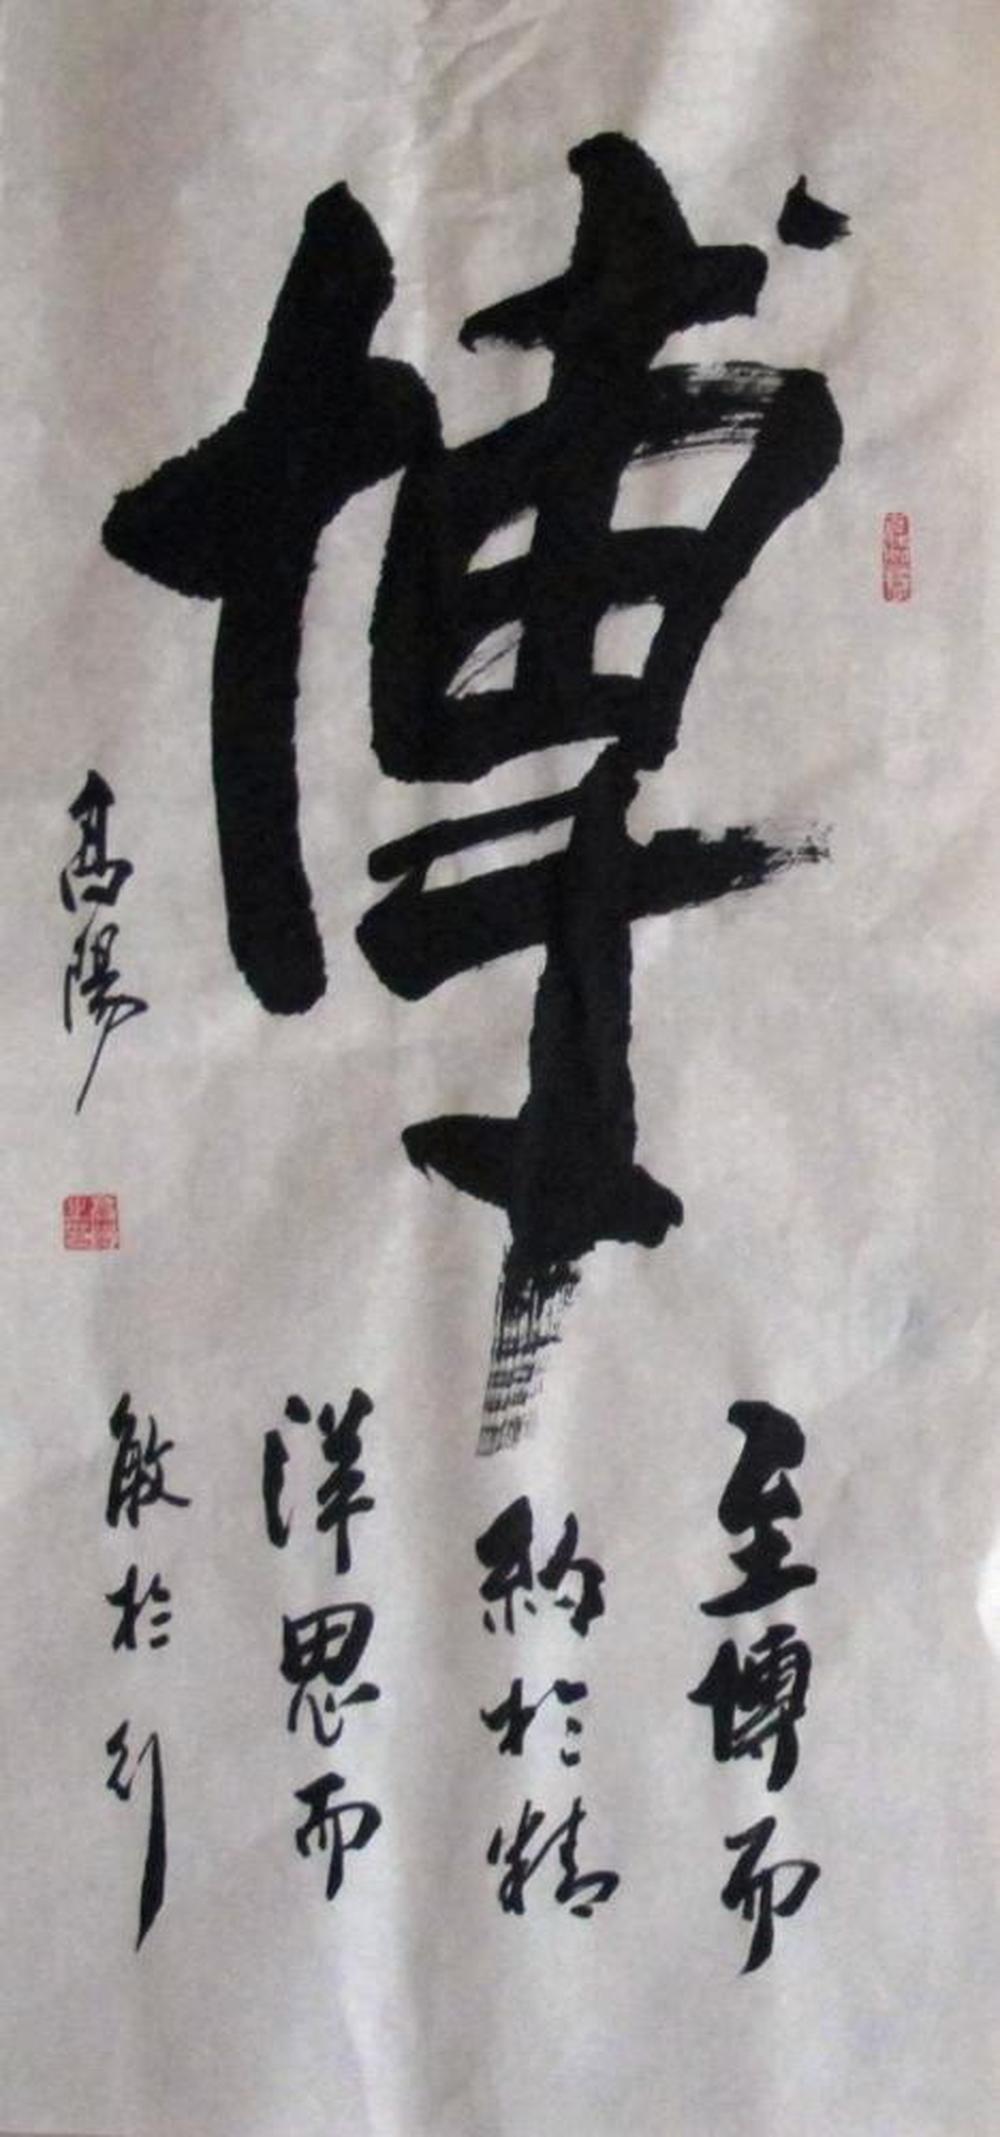 博
至博而
約於精
洋思而
敏於行
高陽